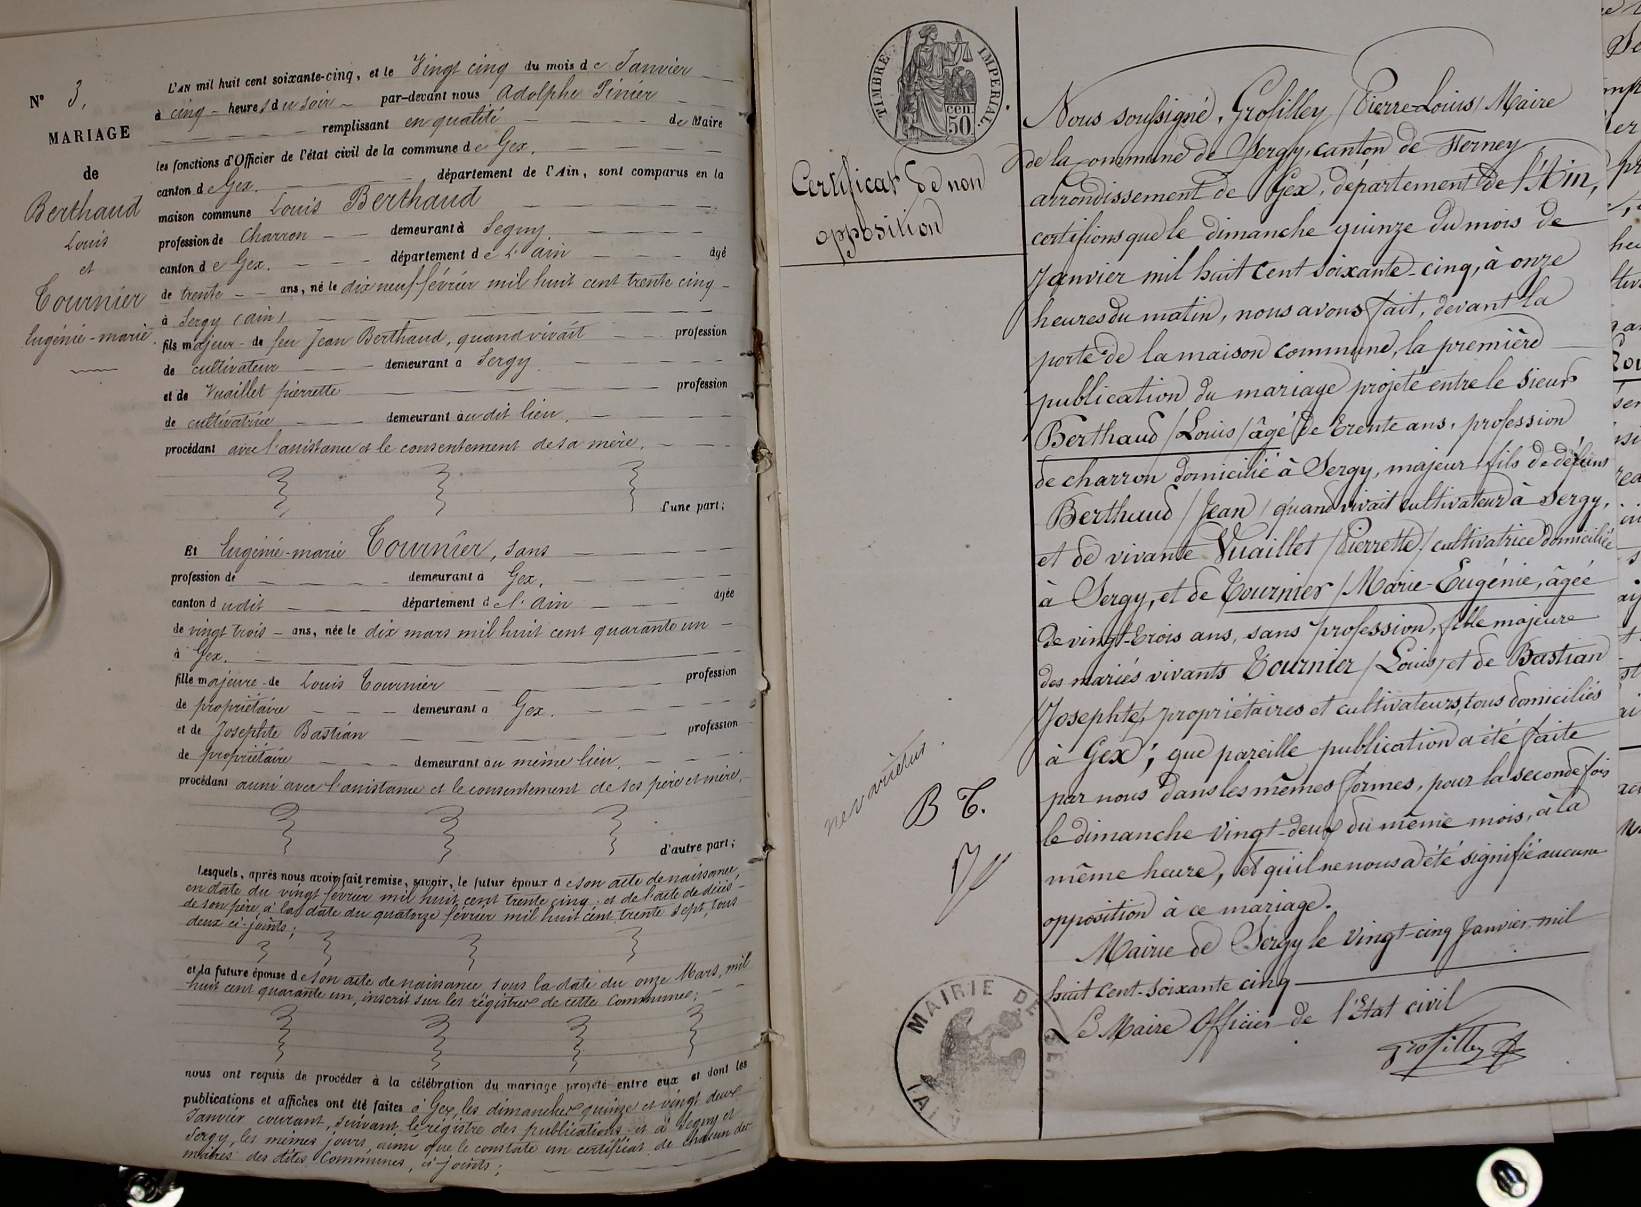 N° 3.
MARIAGE
de
Berthaud
Louis
et
Tournier
Eugénie-marie.
L'AN mil huit cent soixante-cinq, et le Vingt cinq du mois de Janvier
à cinq heures du soir par-devant nous Adolphe Pinier
remplissant en qualité de Maire
les fonctions d'Officier de l'état civil de la commune de Gex.
canton de Gex. département de l'Ain, sont comparus en la
maison commune Louis Berthaud
profession de Charron demeurant à Segny
canton de Gex. département de L'ain âgé
de trente ans, né le dix neuf février mil huit cent trente cinq
à Sergy (ain)
fils majeur de feu Jean Berthaud, quand vivait profession
de cultivateur demeurant à Sergy
et de Vuaillet pierrette profession
de cultivatrice demeurant au dit lieu.
procédant avec l'assistance et le consentement de sa mère.
d'une part;
Et Eugénie-marie Tournier, sans
profession de demeurant à Gex.
canton dudit département de l'ain âgée
de vingt trois ans, née le dix mars mil huit cent quarante un
à Gex.
fille majeure de Louis Tournier profession
de propriétaire demeurant à Gex.
et de Josephte Bastian profession
de propriétaire demeurant au même lieu.
procédant aussi avec l'assistance et le consentement de ses père et mère.
d'autre part;
Lesquels, après nous avoir fait remise, savoir, le futur époux de son acte de naissance,
en date du vingt février mil huit cent trente cinq; et de l'acte de décès
de son père, à la date du quatorze février mil huit cent trente sept, tous
deux ci-joints;
et la future épouse de son acte de naissance sous la date du onze Mars, mil
huit cent quarante un, inscrit sur les régistres de cette Commune;
nous ont requis de procéder à la célébration du mariage projeté entre eux et dont les
publications et affiches ont été faites à Gex, les dimanches quinze et vingt deux
Janvier courant, suivant le régistre des publications et à Segny et
Sergy, les mêmes jours, ainsi que le constate un certificat de chacun des
maires des dites Communes, ci-joints;
TIMBRE IMPERIAL.
50 cen
Certificat de non
opposition
Nous soussigné, Grosfilley (Pierre-Louis) Maire
de la commune de Sergy, canton de Ferney
arrondissement de Gex, département de l'Ain,
certifions que le dimanche quinze du mois de
Janvier mil huit cent soixante-cinq, à onze
heures du matin, nous avons fait, devant la
porte de la maison commune, la première
publication du mariage projeté entre le sieur
Berthaud (Louis) âgé de trente ans, profession
de charron domicilié à Sergy, majeur fils de défunt
Berthaud (Jean) quand vivait cultivateur à Sergy,
et de vivante Vuaillet (Pierrette) cultivatrice domiciliée
à Sergy, et de Tournier (Marie-Eugénie, âgée
de vingt-trois ans, sans profession, fille majeure
des mariés vivants Tournier (Louis) et de Bastian
Josephte, propriétaires et cultivateurs, tous domiciliés
à Gex; que pareille publication a été faite
par nous dans les mêmes formes, pour la seconde fois
le dimanche vingt-deux du même mois, à la
même heure, et qu'il ne nous a été signifié aucune
opposition à ce mariage.
Mairie de Sergy le vingt-cinq Janvier mil
huit cent-soixante cinq
Le Maire Officier de l'Etat civil
Grosfilley
ne varietur.
B T.
MAIRIE DE SER